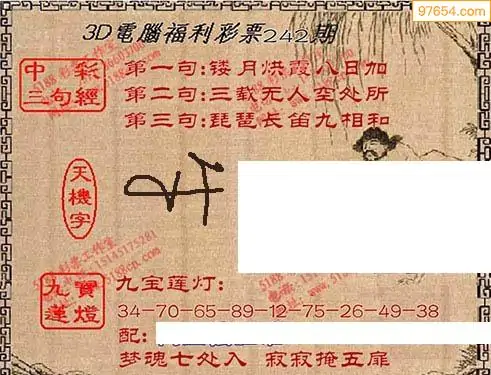 97654.com
3D電腦福利彩票242期
中彩
三句經
第一句:镂月烘霞八日加
第二句:三载无人至处所
第三句:琵琶长笛九相和
天機字
九寶蓮燈
九宝莲灯:
34-70-65-89-12-75-26-49-38
配:
梦魂七处入 寂寂掩五扉